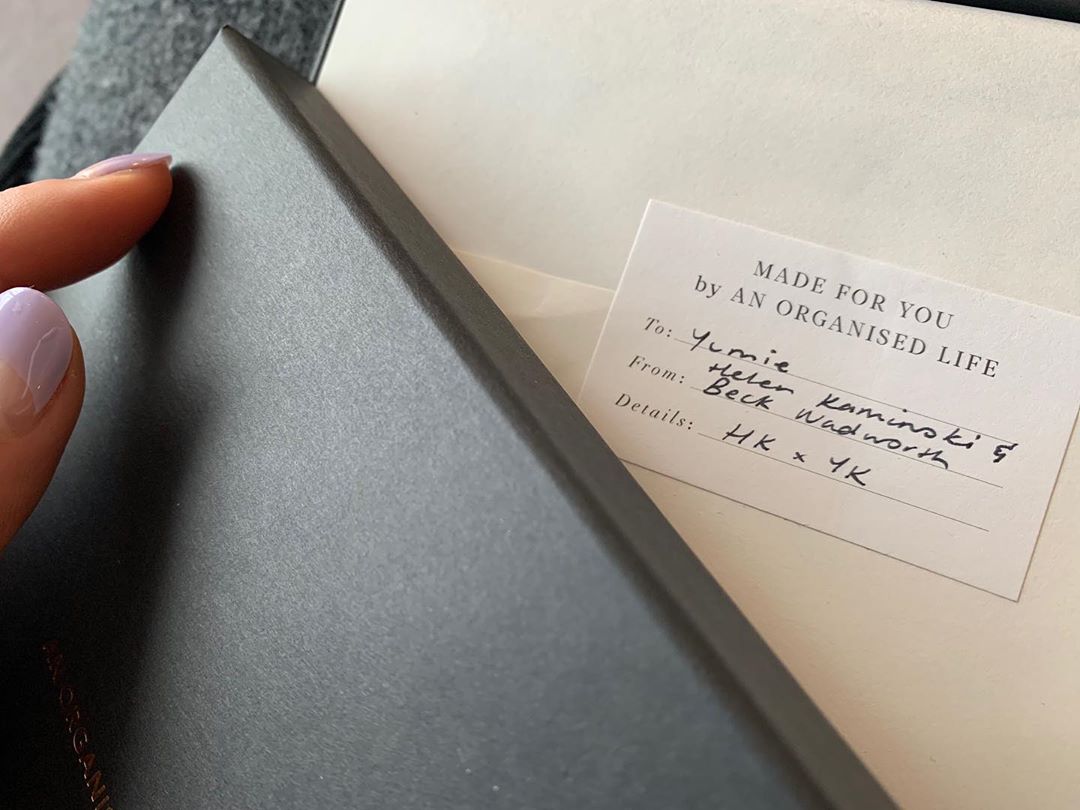 MADE FOR YOU
by AN ORGANISED LIFE
To: Yumie
From: Helen Kaminski &
Beck Wadworth
Details: HK x YK
AN ORGANI